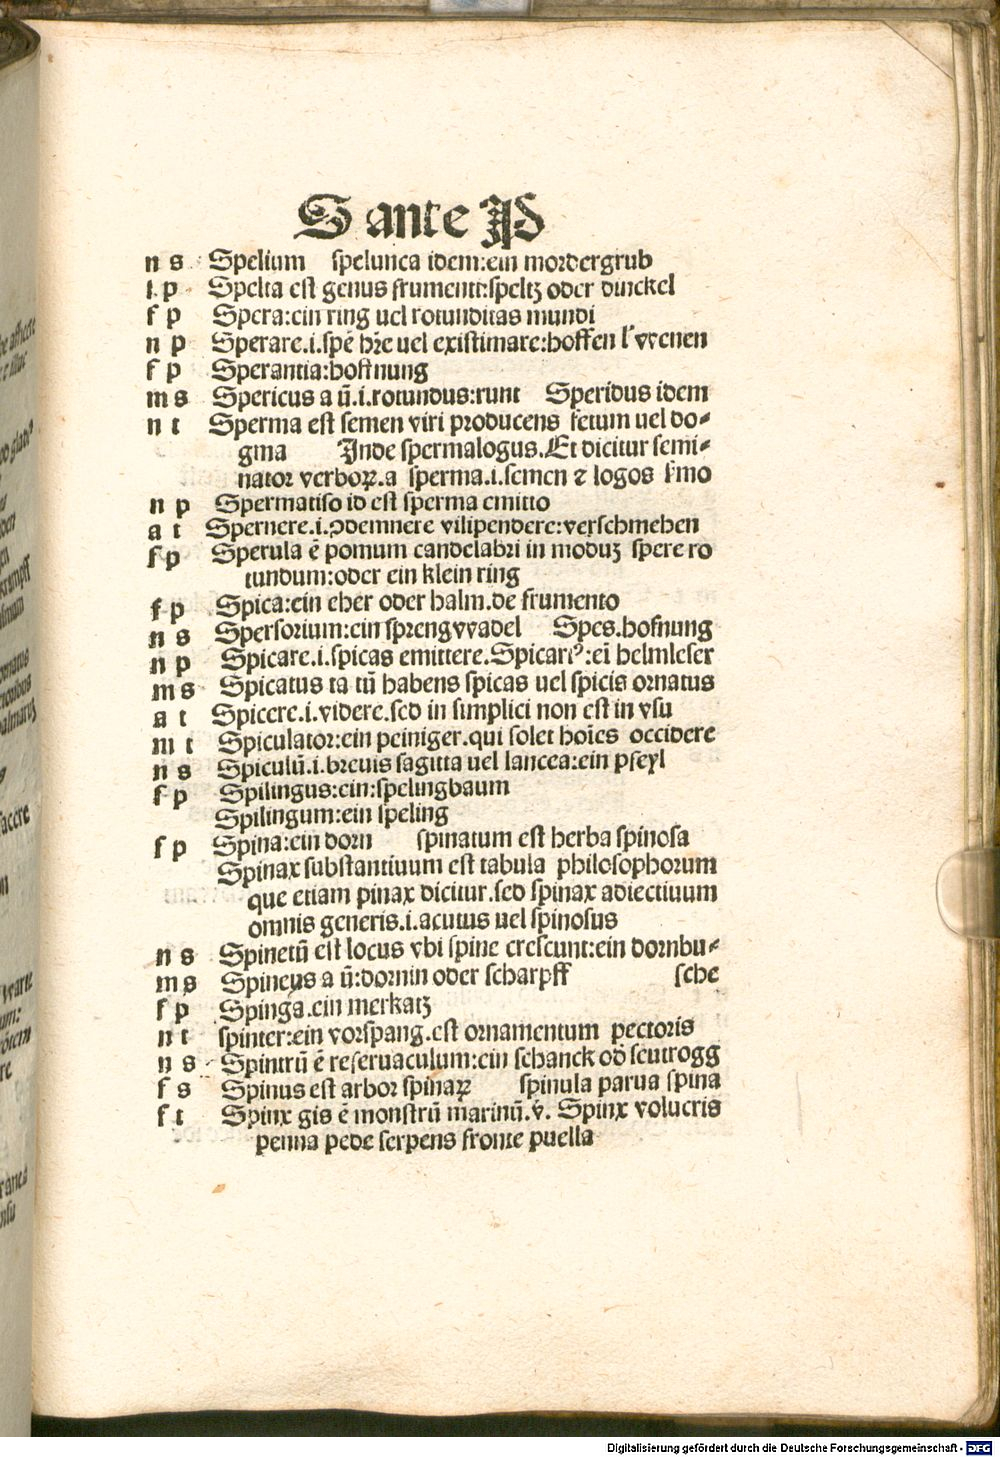 S ante P
n s Spelium spelunca idem:ein mordergrub
f p Spelta est genus frumenti:speltz oder dinckel
f p Spera:ein ring uel rotunditas mundi
n p Sperare.i.spē hr̄e uel existimare:hoffen l' vvenen
f p Sperantia:hoffnung
m s Spericus a ū.i.rotundus:runt Speridus idem
n t Sperma est semen viri producens fetum uel do-
gma Inde spermalogus.Et dicitur semi-
nator verboꝝ.a sperma.i.semen ⁊ logos s̄mo
n p Spermatiso id est sperma emitto
a t Spernere.i.ꝯdemnere vilipendere:verschmehen
f p Sperula ē pomum candelabri in moduʒ spere ro
tundum:oder ein klein ring
f p Spica:ein eher oder halm.de frumento
n s Spersorium:ein sprengvvadel Spes.hofnung
n p Spicare.i.spicas emittere.Spicariꝰ:eī helmleser
m s Spicatus ta tū habens spicas uel spicis ornatus
a t Spicere.i.videre.sed in simplici non est in vsu
m t Spiculator:ein peiniger.qui solet hoīes occidere
n s Spiculū.i.breuis sagitta uel lancea:ein pfeyl
f p Spilingus:ein:spelingbaum
Spilingum:ein speling
f p Spina:ein dorn spinatum est herba spinosa
Spinax substantiuum est tabula philosophorum
que etiam pinax dicitur.sed spinax adiectiuum
omnis generis.i.acutus uel spinosus
n s Spinetū est locus vbi spine crescunt:ein dornbu-
m s Spineus a ū:dornin oder scharpff sche
f p Spinga.ein merkatz
n t spinter:ein vorspang.est ornamentum pectoris
n s Spintrū ē reseruaculum:ein schanck od seutrogg
f s Spinus est arbor spinaꝝ spinula parua spina
f t Spinx gis ē monstrū marinū.v̄. Spinx volucris
penna pede serpens fronte puella
Digitalisierung gefördert durch die Deutsche Forschungsgemeinschaft - DFG